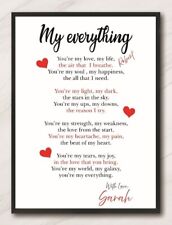 My everything
You're my love, my life,
the air that I breathe.
Robert
You're my soul, my happiness,
the all that I need.
You're my light, my dark,
the stars in the sky.
You're my ups, my downs,
the reason I try.
You're my strength, my weakness,
the love from the start.
You're my heartache, my pain,
the beat of my heart.
You're my tears, my joy,
in the love that you bring.
You're my world, my galaxy,
you're my everything.
With Love,
Sarah